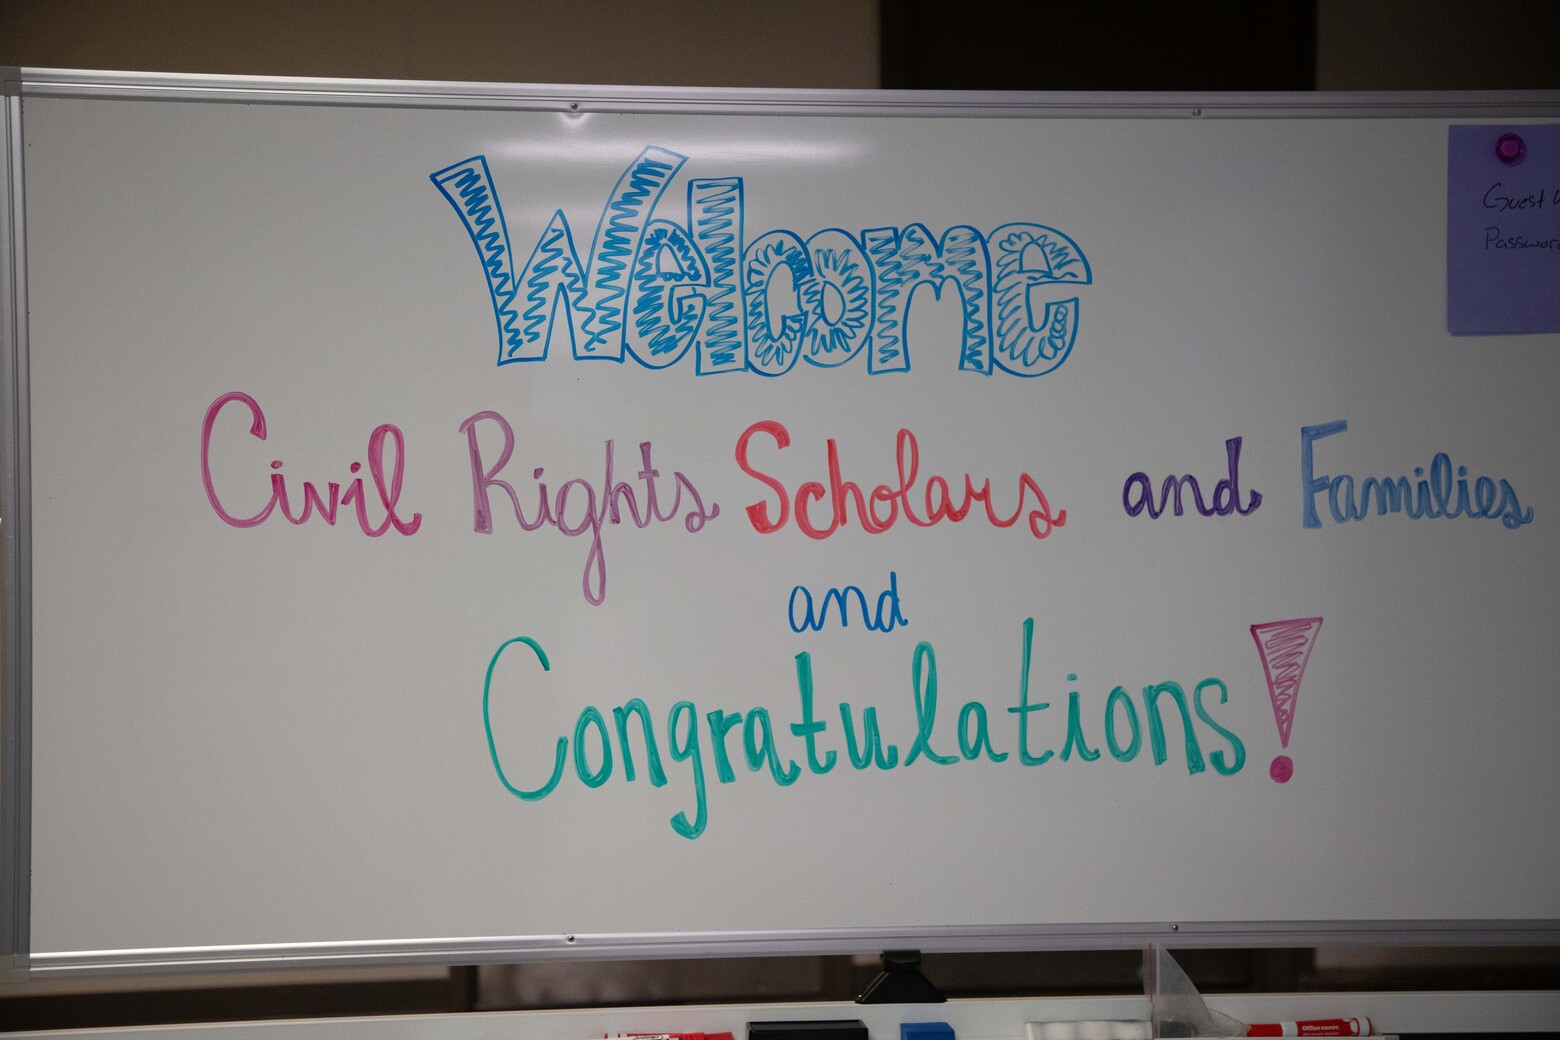 Welcome
Civil Rights Scholars and Families
and
Congratulations!
Guest
Password
Office DEPOT